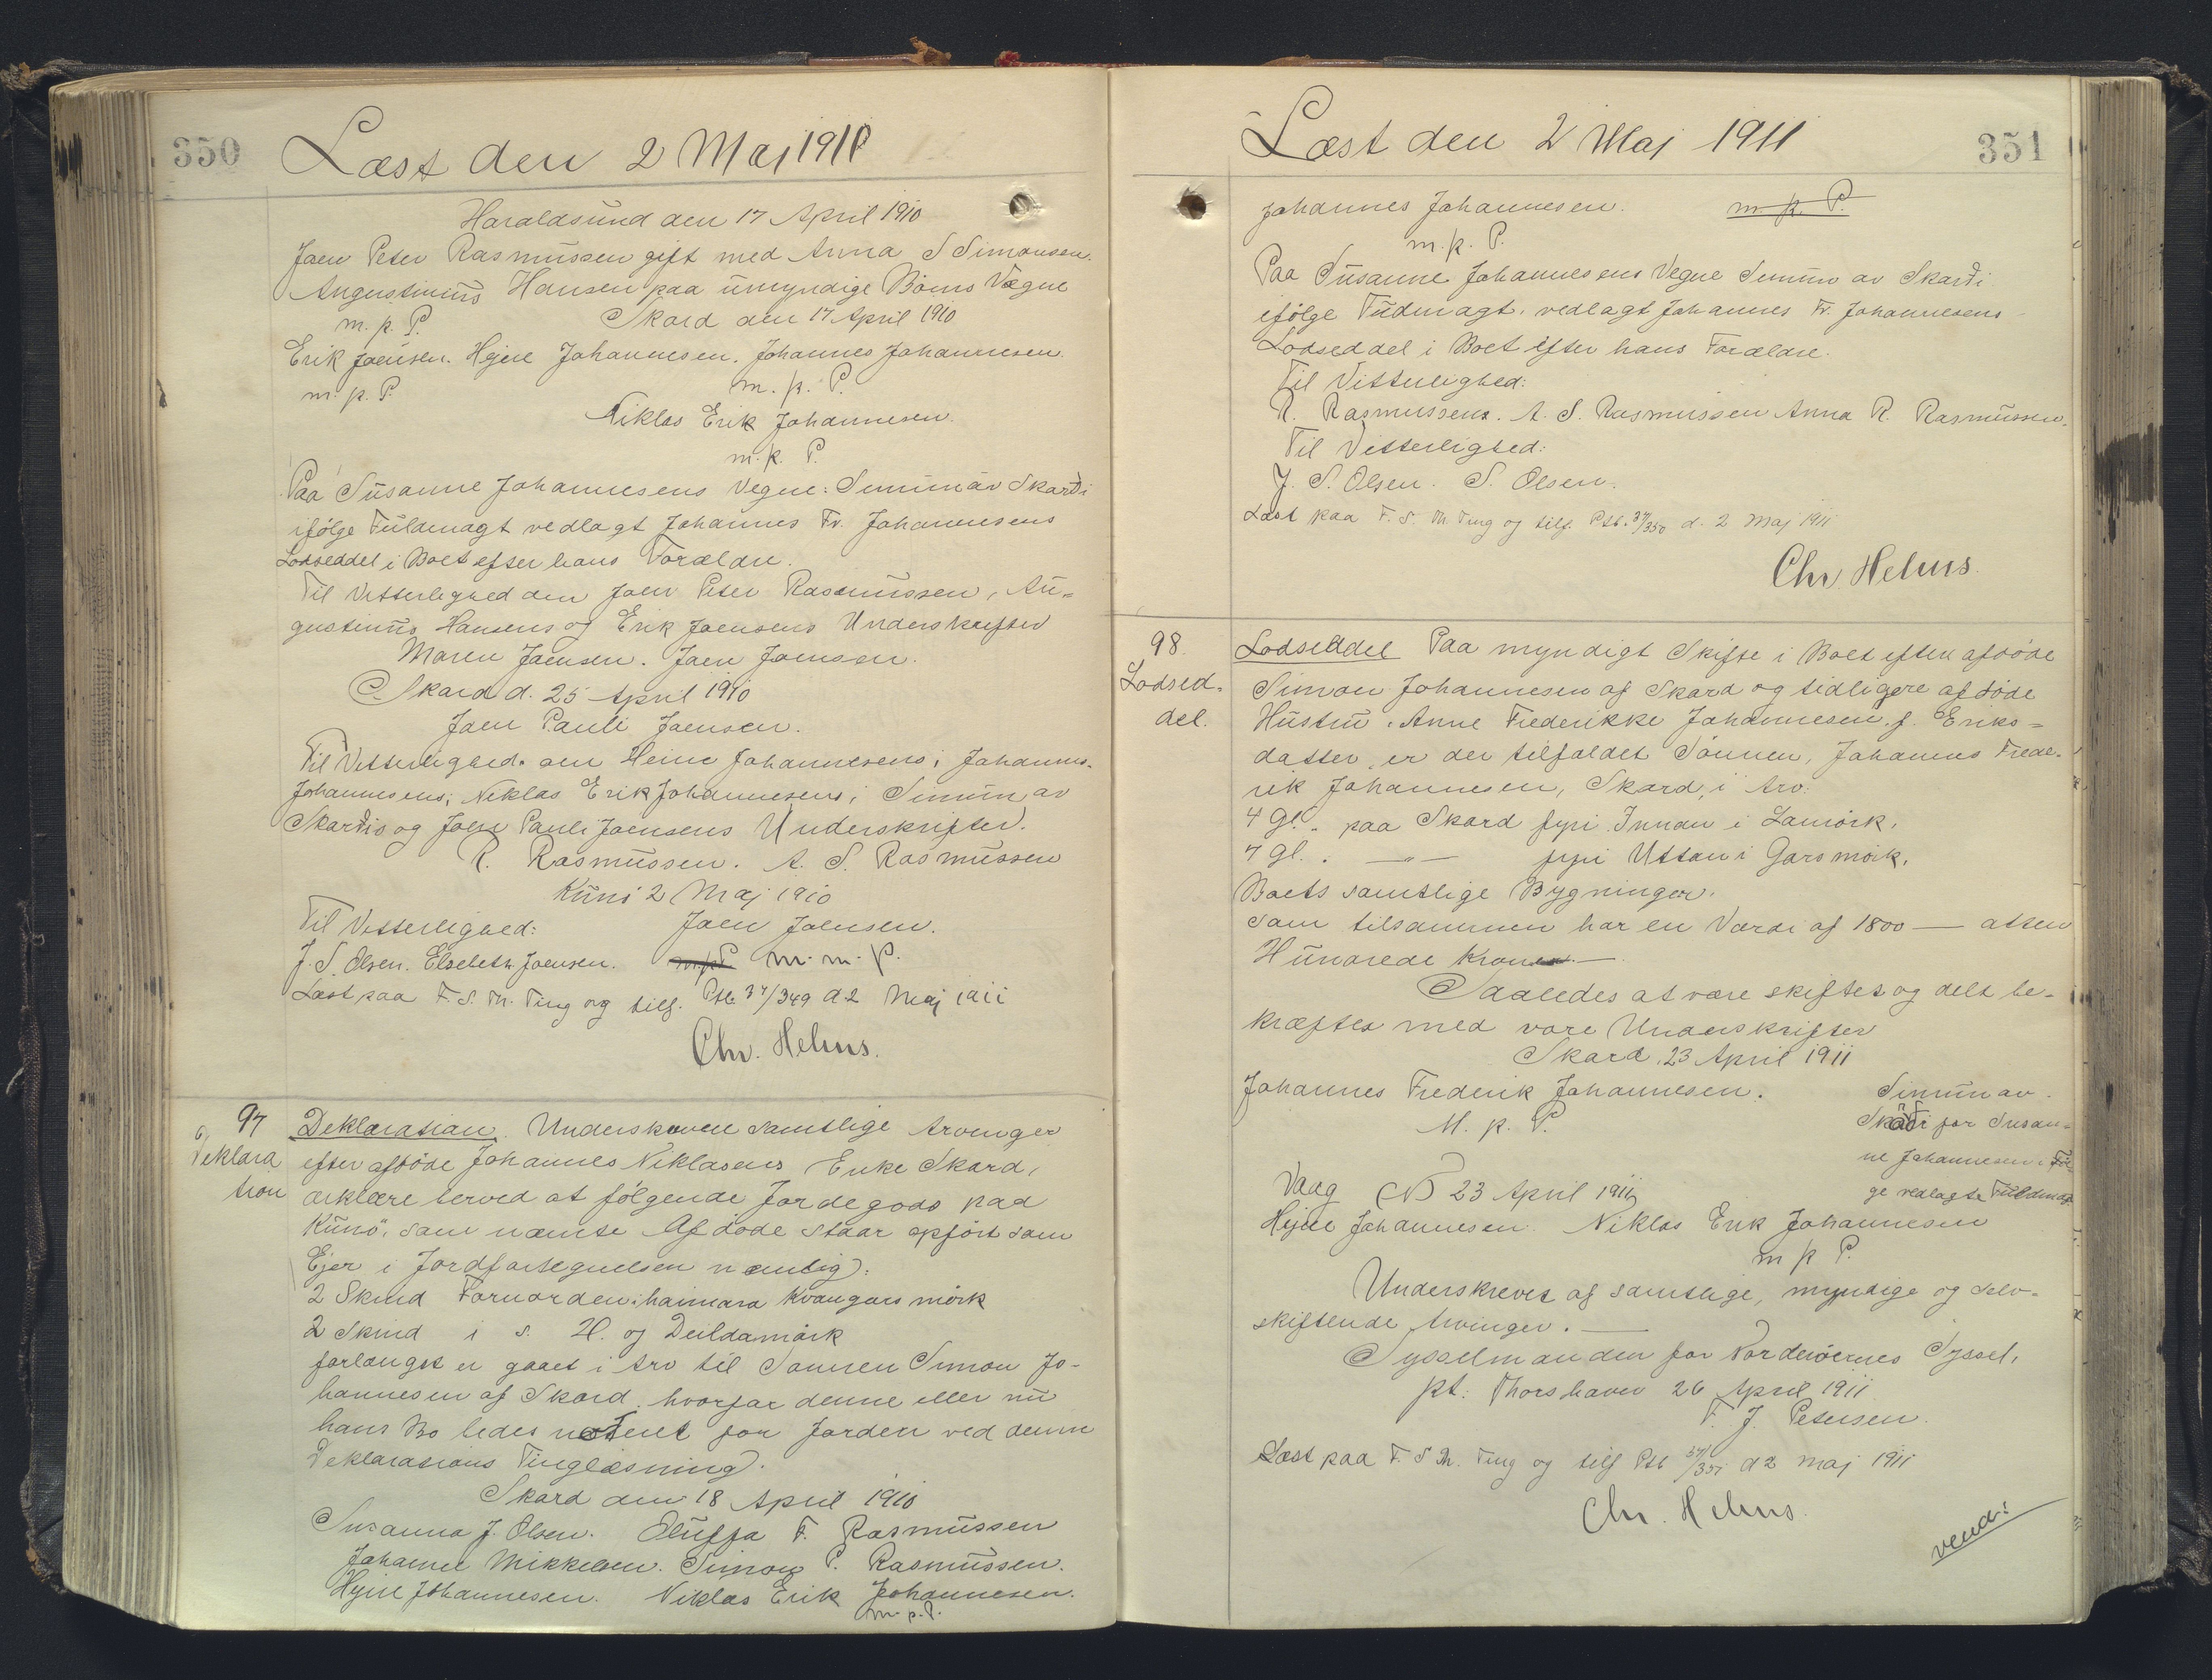 350
Læst den 2 Maj 1911
Haraldsund den 17 April 1910
Joen Peter Rasmussen gift med Anna S Simonsen.
Augustinus Hansen paa umyndige Börns Vegne
m. p. P. Skard den 17 April 1910
Erik Joensen. Hejne Johannesen. Johannes Johannesen.
m. p. P. m. p. P.
Niklas Erik Johannesen.
m. p. P.
Paa Susanne Johannesens Vegne: Simmun av Skardi
ifølge Fuldmagt vedlagt Johannes Fr. Johannesens
Lodseddel i Boet efter hans Forældre.
Til Vitterlighed om Joen Peter Rasmussen, Au=
gustinus Hansens og Erik Joensens Underskrifter
Maren Joensen. Joen Joensen.
Skard d. 25 April 1910
Joen Pauli Joensen.
Til Vitterlighed om Heine Johannesens; Johannes
Johannesens; Niklas Erik Johannesens; Simun av
Skardis og Joen Pauli Joensens Underskrifter.
R. Rasmussen. A. S. Rasmussen
Kunö 2 Maj 1910
Til Vitterlighed: Joen Joensen.
J. S. Olsen. Elsebeth Joensen. m.p.P. m. m. P.
Læst paa F. S. Th. Ting og tilf. Ptb. 37/349 d 2 Maj 1911
Chr. Helms.
97
Deklara
tion
Deklaration. Underskrevne samtlige Arvinger
efter afdöde Johannes Niklasens Enke Skard,
erklære herved at følgende Jordegods paa
Kunö, som nævnte Afdöde staar opfört som
Ejer i Jordfortegnelsen nemlig:
2 Skind Fornorden: haimara Kvangars mörk
2 Skind i s. H. og Deildamörk
forlængst er gaaet i Arv til Sönnen Simon Jo-
hannesen af Skard, hvorfor denne eller nu
hans Bo bedes noteret for Jorden ved denne
Deklarations Tinglæsning.
Skard den 18 April 1910
Susanna J. Olsen. Oluffa F. Rasmussen
Johanne Mikkelsen. Simon P. Rasmussen.
Hejne Johannesen. Niklas Erik Johannesen.
m. p. P.
Læst den 2 Maj 1911
351
Johannes Johannesen. m. p. P.
m. p. P.
Paa Susanne Johannesens Vegne Simmun av Skardi
ifølge Fudmagt. vedlagt Johannes Fr. Johannesens
Lodseddel i Boet efter hans Forældre.
Til Vitterlighed:
R. Rasmussen. A. S. Rasmussen Anna R. Rasmussen.
Til Vitterlighed:
J. S. Olsen. S. Olsen.
Læst paa F. S. Th. Ting og tilf. Ptb. 37/350 d. 2 Maj 1911
Chr. Helms.
98.
Lodsed.
del.
Lodseddel Paa myndigt Skifte i Boet efter afdöde
Simon Johannesen af Skard og tidligere afdöde
Hustru Anne Frederikke Johannesen f. Eriks=
datter, er der tilfaldet Sönnen, Johannes Frede-
rik Johannesen, Skard, i Arv:
4 Gl. paa Skard fyri Innan i Lamörk.
7 Gl. . — " — fyri Uttan i Garsmörk.
Boets samtlige Bygninger.
som tilsammen har en Værdi af 1800 — atten
Hundrede Kroner. —
Saaledes at være skiftet og delt be-
kræftes med vore Underskrifter
Skard, 23 April 1911
Johannes Frederik Johannesen. Simun av
M. p. P. Skardi for Susan=
ne Johannesen iføl-
ge vedlagte Fuldmagt
Vaag 23 April 1911
Hejne Johannesen. Niklas Erik Johannesen
m p P.
Underskrevet af samtlige, myndige og selv-
skiftende Arvinger. —
Sysselmanden for Norderöernes Syssel,
pt: Thorshavn 26 April 1911
F. J. Petersen.
Læst paa F. S Th. Ting og tilf Ptb 37/351 d 2 Maj 1911
Chr. Helms.
vend!